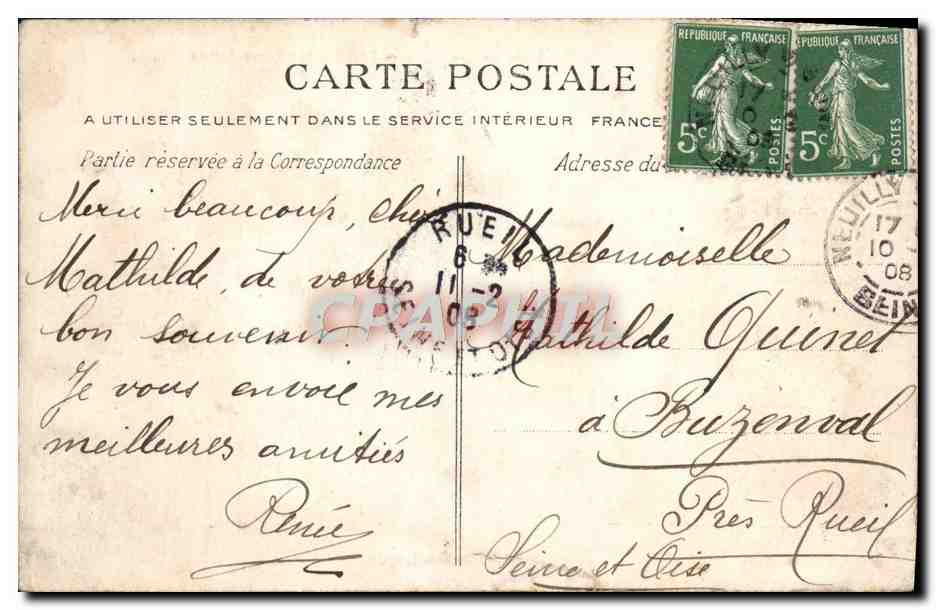 CARTE POSTALE
A UTILISER SEULEMENT DANS LE SERVICE INTÉRIEUR FRANCE
Partie réservée à la Correspondance
Adresse du
REPUBLIQUE FRANÇAISE
5c
POSTES
REPUBLIQUE FRANÇAISE
5c
POSTES
NEUILLY
17
10
08
SEINE
RUEIL
6
11-2
08
SEINE ET O
CPAPHIL
Merci beaucoup, chère
Mathilde, de votre
bon souvenir.
Je vous envoie mes
meilleures amitiés
Renée
Mademoiselle
Mathilde Quinet
à Buzenval
Près Rueil
Seine et Oise